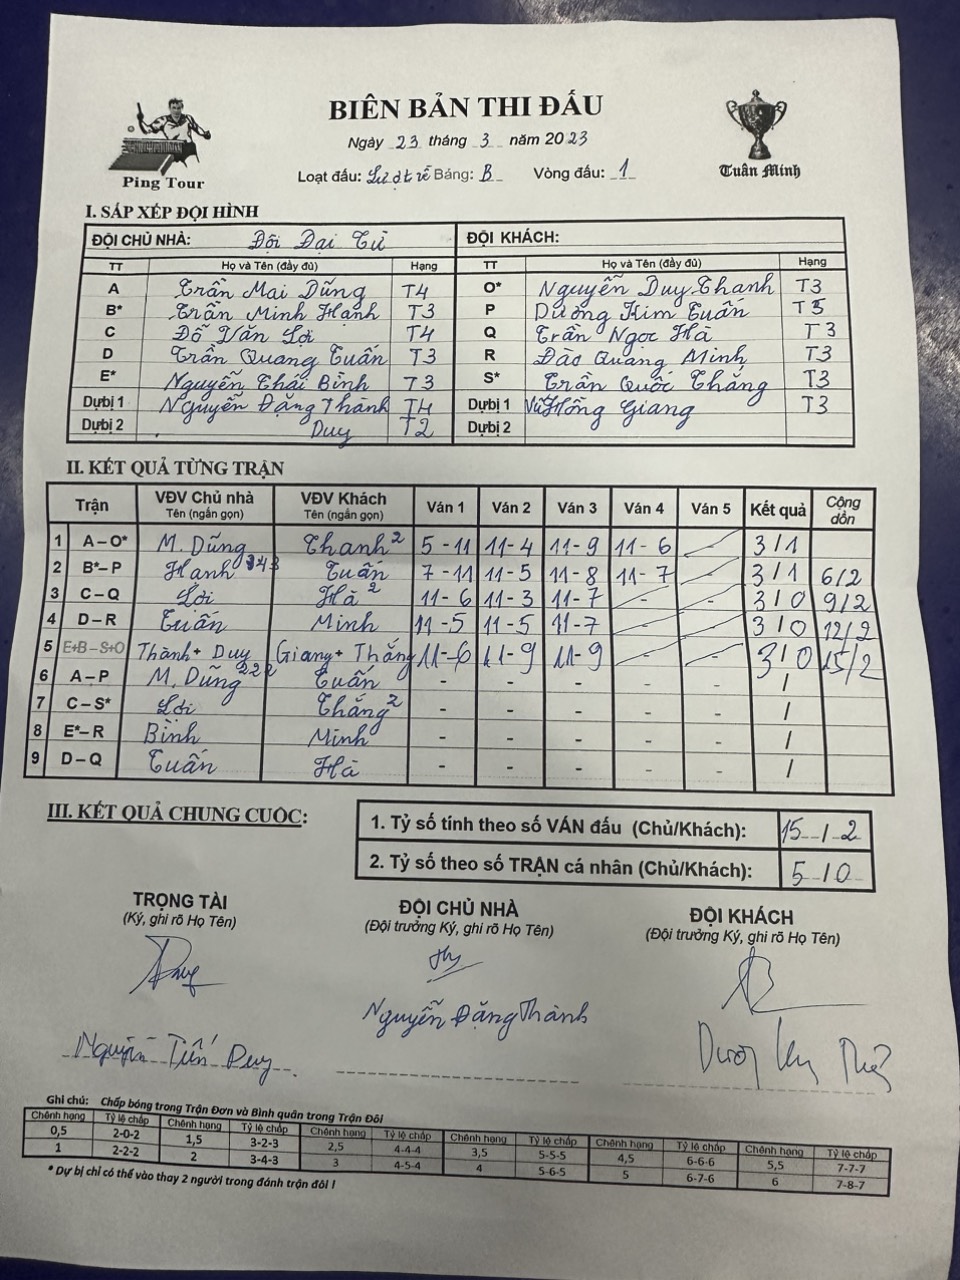 BIÊN BẢN THI ĐẤU
Ngày 23 tháng 3 năm 2023
Ping Tour
Loạt đấu: Lượt về Bảng: B Vòng đấu: 1
Tuấn Minh
I. SẮP XẾP ĐỘI HÌNH
ĐỘI CHỦ NHÀ: Đội Đại Từ ĐỘI KHÁCH:
TT Họ và Tên (đầy đủ) Hạng TT Họ và Tên (đầy đủ) Hạng
A Trần Mai Dũng T4 O* Nguyễn Duy Thanh T3
B* Trần Minh Hạnh T3 P Dương Kim Tuấn T5
C Đỗ Văn Lợi T4 Q Trần Ngọc Hà T3
D Trần Quang Tuấn T3 R Đào Quang Minh T3
E* Nguyễn Thái Bình T3 S* Trần Quốc Thắng T3
Dựbị 1 Nguyễn Đăng Thành T4 Dựbị 1 Vũ Hồng Giang T3
Dựbị 2 Duy T2 Dựbị 2
II. KẾT QUẢ TỪNG TRẬN
Trận VĐV Chủ nhà Tên (ngắn gọn) VĐV Khách Tên (ngắn gọn) Ván 1 Ván 2 Ván 3 Ván 4 Ván 5 Kết quả Cộng dồn
1 A – O* M. Dũng Thanh 2 5 - 11 11 - 4 11 - 9 11 - 6 - 3 / 1
2 B* – P Hạnh 343 Tuấn 7 - 11 11 - 5 11 - 8 11 - 7 - 3 / 1 6/2
3 C – Q Lợi Hà 2 11 - 6 11 - 3 11 - 7 - - 3 / 0 9/2
4 D – R Tuấn Minh 11 - 5 11 - 5 11 - 7 - - 3 / 0 12/2
5 E+B – S+O Thành + Duy Giang + Thắng 11 - 6 11 - 9 11 - 9 - - 3 / 0 15/2
6 A – P M. Dũng 222 Tuấn - - - - - /
7 C – S* Lợi Thắng 2 - - - - - /
8 E* – R Bình Minh - - - - - /
9 D – Q Tuấn Hà - - - - - /
III. KẾT QUẢ CHUNG CUỘC:
1. Tỷ số tính theo số VÁN đấu (Chủ/Khách): 15 / 2
2. Tỷ số theo số TRẬN cá nhân (Chủ/Khách): 5 / 0
TRỌNG TÀI ĐỘI CHỦ NHÀ ĐỘI KHÁCH
(Ký, ghi rõ Họ Tên) (Đội trưởng Ký, ghi rõ Họ Tên) (Đội trưởng Ký, ghi rõ Họ Tên)
Nguyễn Tiến Duy Nguyễn Đăng Thành Dương
Ghi chú: Chấp bóng trong Trận Đơn và Bình quân trong Trận Đôi
Chênh hạng Tỷ lệ chấp Chênh hạng Tỷ lệ chấp Chênh hạng Tỷ lệ chấp Chênh hạng Tỷ lệ chấp Chênh hạng Tỷ lệ chấp Chênh hạng Tỷ lệ chấp
0,5 2-0-2 1,5 3-2-3 2,5 4-4-4 3,5 5-5-5 4,5 6-6-6 5,5 7-7-7
1 2-2-2 2 3-4-3 3 4-5-4 4 5-6-5 5 6-7-6 6 7-8-7
* Dự bị chỉ có thể vào thay 2 người trong đánh trận đôi !